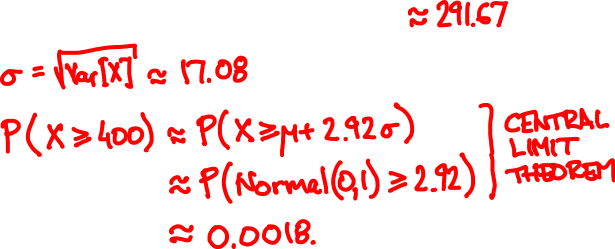 ≈ 291.67
σ = √Var[X] ≈ 17.08
P(X ≥ 400) ≈ P(X ≥ μ + 2.92σ)
≈ P(Normal(0,1) ≥ 2.92)
CENTRAL
LIMIT
THEOREM
≈ 0.0018.